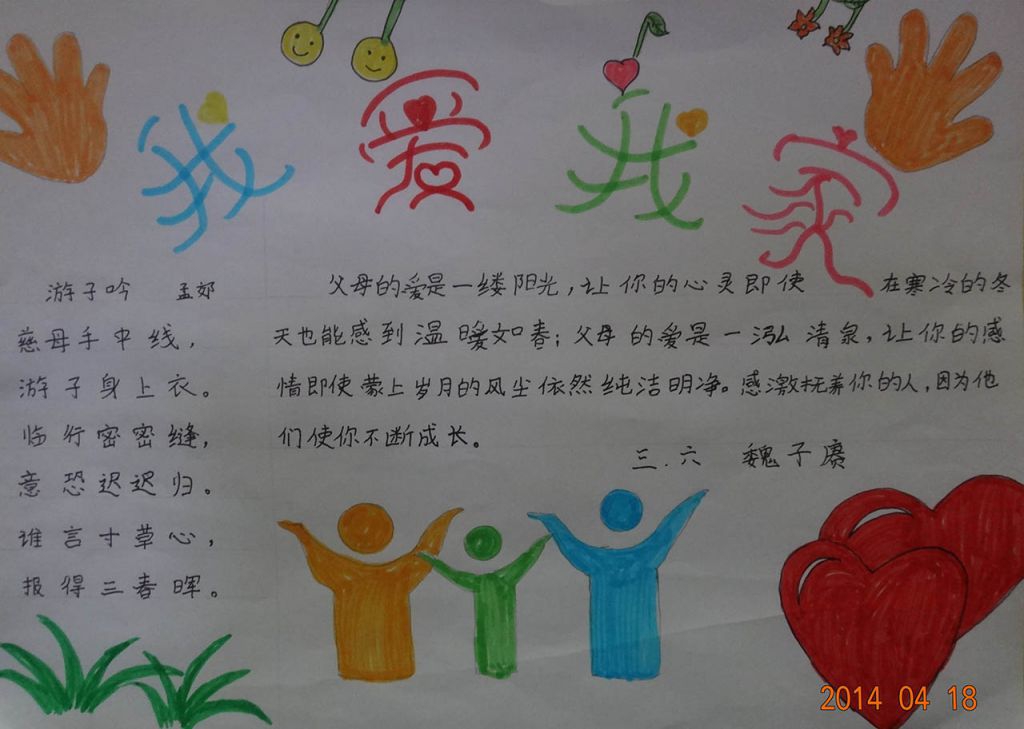 我爱我家
游子吟 孟郊
慈母手中线，
游子身上衣。
临行密密缝，
意恐迟迟归。
谁言寸草心，
报得三春晖。
父母的爱是一缕阳光，让你的心灵即使在寒冷的冬
天也能感到温暖如春；父母的爱是一泓清泉，让你的感
情即使蒙上岁月的风尘依然纯洁明净。感激抚养你的人，因为他
们使你不断成长。
三.六 魏子赓
2014 04 18